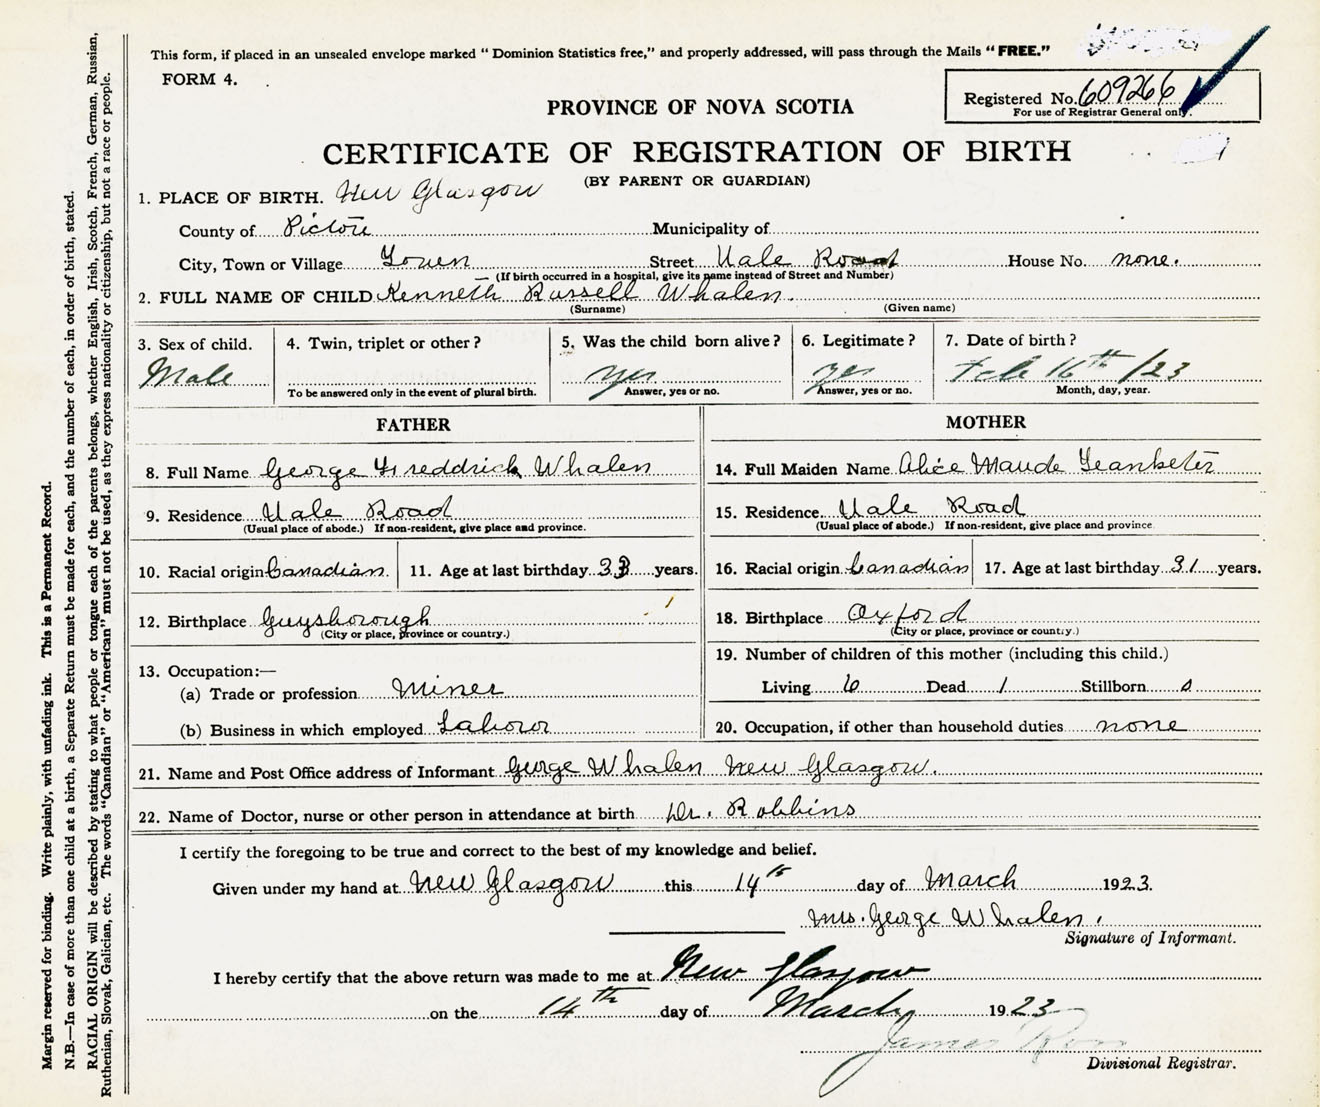 This form, if placed in an unsealed envelope marked "Dominion Statistics free," and properly addressed, will pass through the Mails "FREE."
FORM 4.
Registered No. 609266
For use of Registrar General only.
PROVINCE OF NOVA SCOTIA
CERTIFICATE OF REGISTRATION OF BIRTH
(BY PARENT OR GUARDIAN)
1. PLACE OF BIRTH. New Glasgow
County of Pictou Municipality of
City, Town or Village Town Street Vale Road House No. none.
(If birth occurred in a hospital, give its name instead of Street and Number)
2. FULL NAME OF CHILD Kenneth Russell Whalen.
(Surname) (Given name)
3. Sex of child. 4. Twin, triplet or other? 5. Was the child born alive? 6. Legitimate? 7. Date of birth?
Male yes yes Feb 16th /23
To be answered only in the event of plural birth. Answer, yes or no. Answer, yes or no. Month, day, year.
FATHER MOTHER
8. Full Name George Freddrick Whalen 14. Full Maiden Name Alice Maude
9. Residence Vale Road 15. Residence. Vale Road
(Usual place of abode.) If non-resident, give place and province. (Usual place of abode.) If non-resident, give place and province
10. Racial origin Canadian. 11. Age at last birthday 33 years. 16. Racial origin Canadian 17. Age at last birthday 31 years.
12. Birthplace Guysborough 18. Birthplace Oxford
(City or place, province or country.) (City or place, province or country.)
13. Occupation:— 19. Number of children of this mother (including this child.)
(a) Trade or profession Miner Living 6 Dead 1 Stillborn 0
(b) Business in which employed Labour 20. Occupation, if other than household duties none
21. Name and Post Office address of Informant George Whalen New Glasgow.
22. Name of Doctor, nurse or other person in attendance at birth Dr. Robbins
I certify the foregoing to be true and correct to the best of my knowledge and belief.
Given under my hand at New Glasgow this 14th day of March 1923.
Mrs. George Whalen.
Signature of Informant.
I hereby certify that the above return was made to me at New Glasgow
on the 14th day of March 1923
James Ross
Divisional Registrar.
Margin reserved for binding. Write plainly, with unfading ink. This is a Permanent Record.
N.B.—In case of more than one child at a birth, a Separate Return must be made for each, and the number of each, in order of birth, stated.
RACIAL ORIGIN will be described by stating to what people or tongue each of the parents belongs, whether English, Irish, Scotch, French, German, Russian,
Ruthenian, Slovak, Galician, etc. The words "Canadian" or "American" must not be used, as they express nationality or citizenship, but not a race or people.